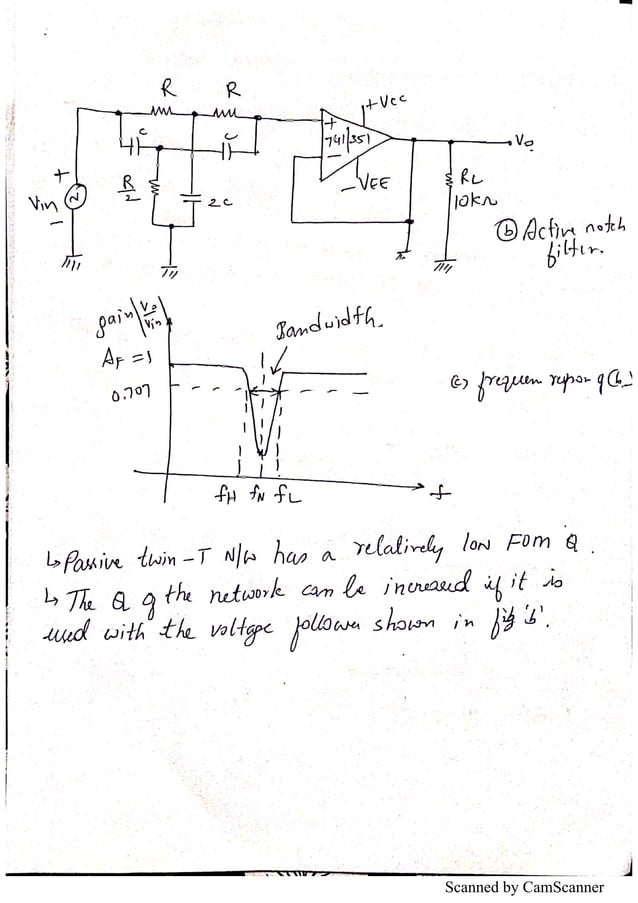 R R
+Vcc
C C
+
741/351
-
Vo
+
Vin
-
R/2
2C
-VEE
RL
10kΩ
(b) Active notch
filter.
gain |Vo/Vin|
Bandwidth.
AF = 1
0.707
(c) frequen repon of (b)
fH fN fL
f
↳ Passive twin-T N/W has a relatively low FOM Q.
↳ The Q of the network can be increased if it is
used with the voltage follower shown in fig 'b'.
Scanned by CamScanner